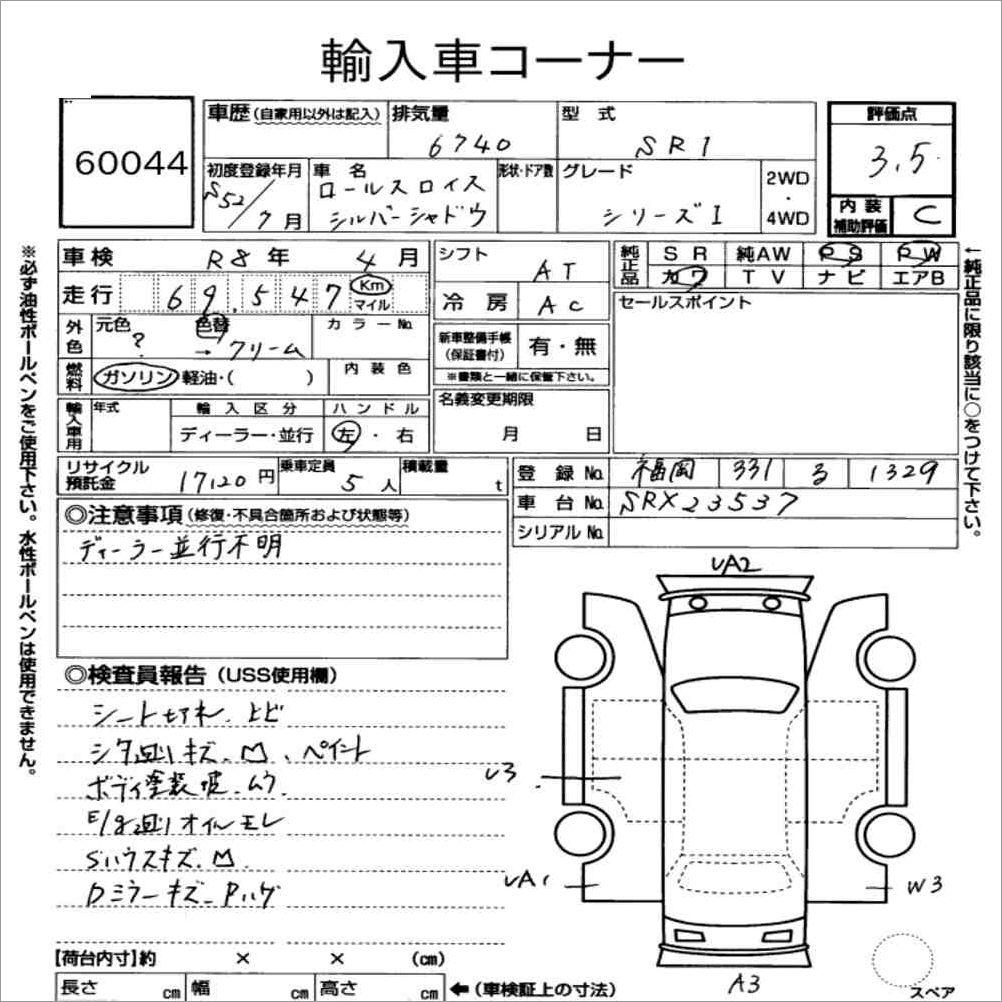 輸入車コーナー
60044
車歴 (自家用以外は記入)
排気量
6740
型式
SR1
評価点
3.5
初度登録年月
S52/7月
車名
ロールスロイス
シルバーシャドウ
形状・ドア数
グレード
シリーズI
2WD
・
4WD
内装
補助評価
C
車検 R8年 4月
シフト
AT
純正品
SR 純AW PS PW
カワ TV ナビ エアB
走行 69,547 Km
マイル
冷房 AC
セールスポイント
外色
元色 ?
色替
→クリーム
カラーNo.
新車整備手帳
(保証書付)
有・無
※書類と一緒に保管下さい。
燃料
ガソリン・軽油・( )
内装色
名義変更期限
月 日
輸入車用
年式
輸入区分
ハンドル
ディーラー・並行
左・右
リサイクル
預託金
17120円
乗車定員
5人
積載量
t
登録No. 福岡 331 る 1329
車台No. SRX23537
シリアルNo.
◎注意事項 (修復・不具合箇所および状態等)
ディーラー並行不明
※必ず油性ボールペンをご使用下さい。水性ボールペンは使用できません。
←純正品に限り該当に○をつけて下さい。
◎検査員報告 (USS使用欄)
シート切れ、ヒビ
シタ廻りキズ、凹、ペイント
ボディ塗装波、ムラ
E/g廻りオイルモレ
Sハウスキズ、凹
Dミラーキズ
UA2
U3
UA1
W3
A3
スペア
【荷台内寸】約 × × (cm)
長さ cm 幅 cm 高さ cm
←(車検証上の寸法)